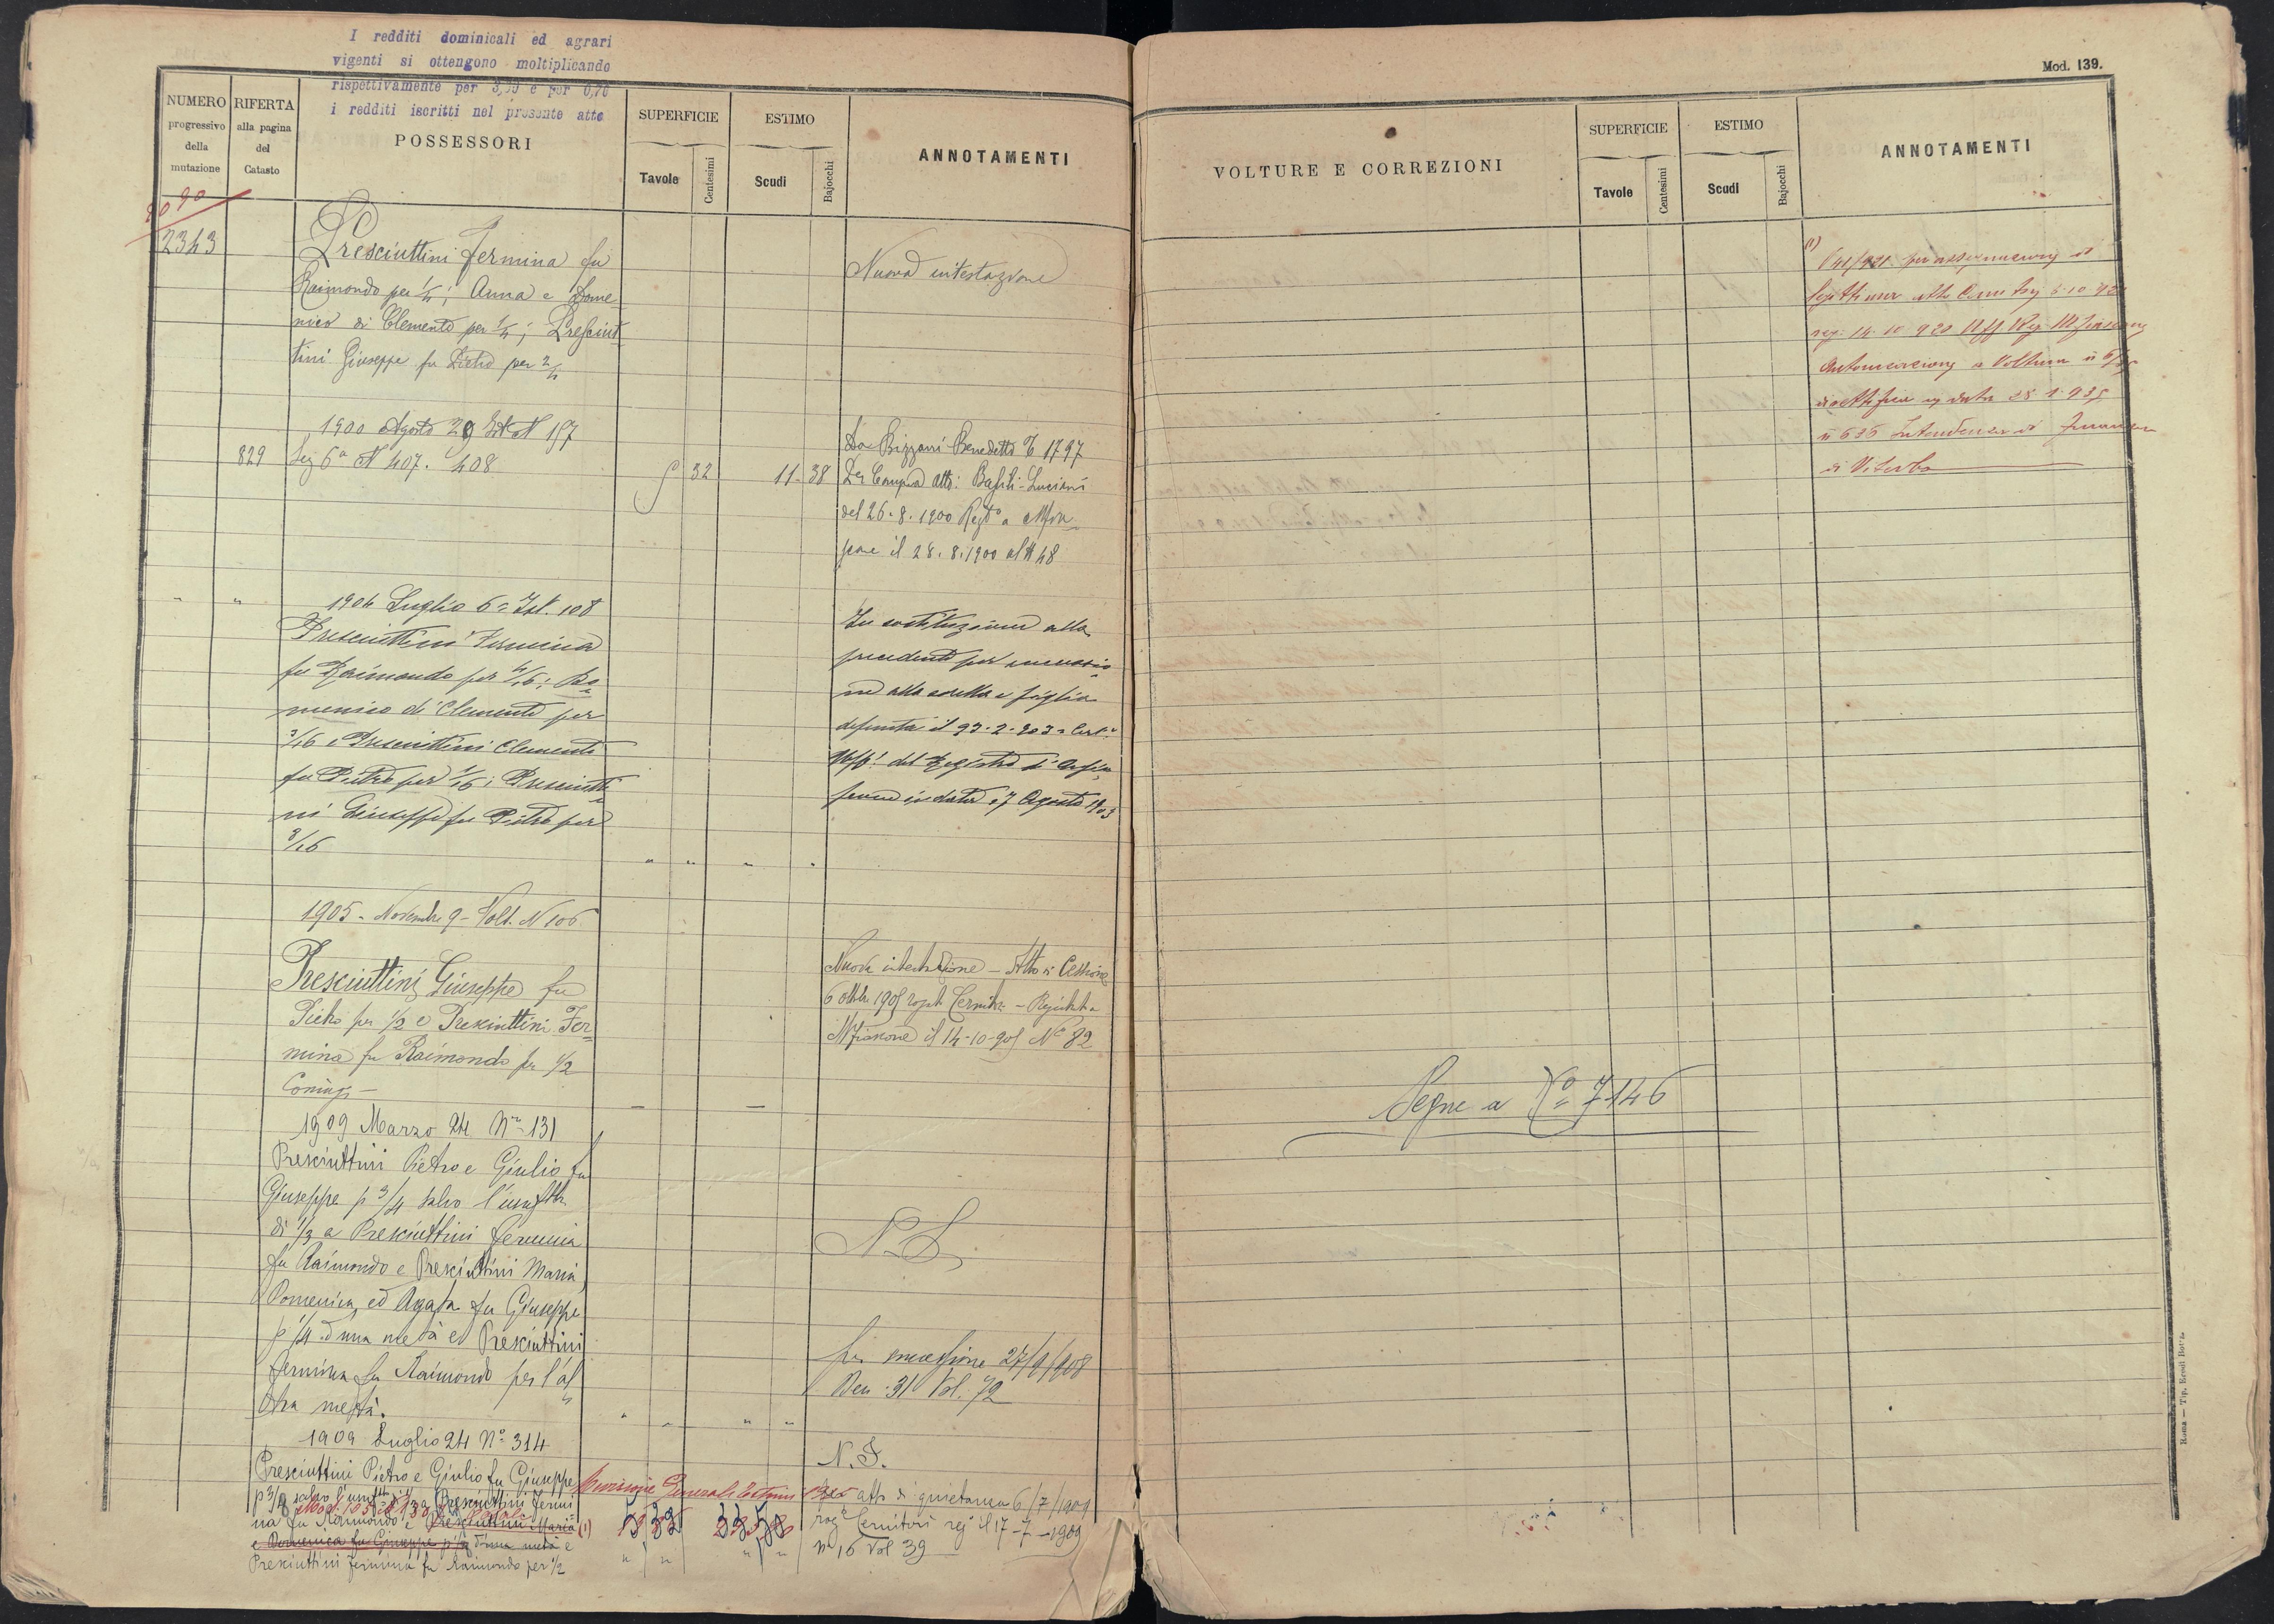 I redditi dominicali ed agrari
vigenti si ottengono moltiplicando
rispettivamente per e per
i redditi iscritti nel presente atto
NUMERO progressivo della mutazione
RIFERTA alla pagina del Catasto
POSSESSORI
SUPERFICIE
Tavole
Centesimi
ESTIMO
Scudi
Bajocchi
ANNOTAMENTI
2343
Presciuttini Fermina fu
Raimondo per 1/4; Anna e Dome
nico di Clemente per 1/4; Presciut
tini Giuseppe fu Pietro per 2/4
Nuova intestazione
1900 Agosto 29 N 157
829
Sez 6a N 407. 408
5 32
11-38
Da Bizzarri Benedetto 1797
Per Compra atto: Luciani
del 26.8.1900 Regto a Mfia
scone il 28.8.1900 al N 48
" "
1904 Luglio 6 = Ist. 108
Presciuttini Fermina
fu Raimondo per 4/16; Do
menico di Clemente per
3/16 e Presciuttini Clemente
fu Pietro per 1/16; Presciutti
ni Giuseppe fu Pietro per
8/16
" " " "
In sostituzione alla
precedente per successio
ne alla sorella e figlia
defunta il
Uff. del Registro di
in data 7 Agosto 1903
1905 - Novembre 9 - Volt. N 106
Presciuttini Giuseppe fu
Pietro per 1/2 e Presciuttini Fer
mina fu Raimondo per 1/2
Coniugi -
Nuova intestazione - Atto di Cessione
6 1905 - Registrato a
Mfiascone il 14-10-905 No 82
1909 Marzo 24 No 131
Presciuttini Pietro e Giulio fu
Giuseppe p 3/4 salvo l'usuftto
di 1/3 a Presciuttini Fermina
fu Raimondo e Presciuttini Maria,
Domenica, ed Agata fu Giuseppe
p 1/4 d'una metà e Presciuttini
Fermina fu Raimondo per l'al
tra metà.
" " " "
per successione 27/9/908
Den. 31 Vol. 72
1909 Luglio 24 No 314
Presciuttini Pietro e Giulio fu Giuseppe
p 3/8 salvo l' 1/3 a Presciuttini Fermi
na fu Raimondo e Presciuttini Maria
e Domenica fu Giuseppe d'una metà e
Presciuttini Fermina fu Raimondo per 1/2
Revisione Generale Estimi
(1)
" " " "
Per atto di quietanza 6/7/1909
rog Cernitori reg il 17-7-1909
n 16 Vol 39
Mod. 139.
VOLTURE E CORREZIONI
SUPERFICIE
Tavole
Centesimi
ESTIMO
Scudi
Bajocchi
ANNOTAMENTI
(1)
per assegnazione di
legittima atto
reg. 14.10.920 Uff Reg Mfiascone
Autorizzazione a Voltura n
rettifica in data 28.1.935
n 636 Intendenza di Finanza
di Viterbo
Segue a No 7146